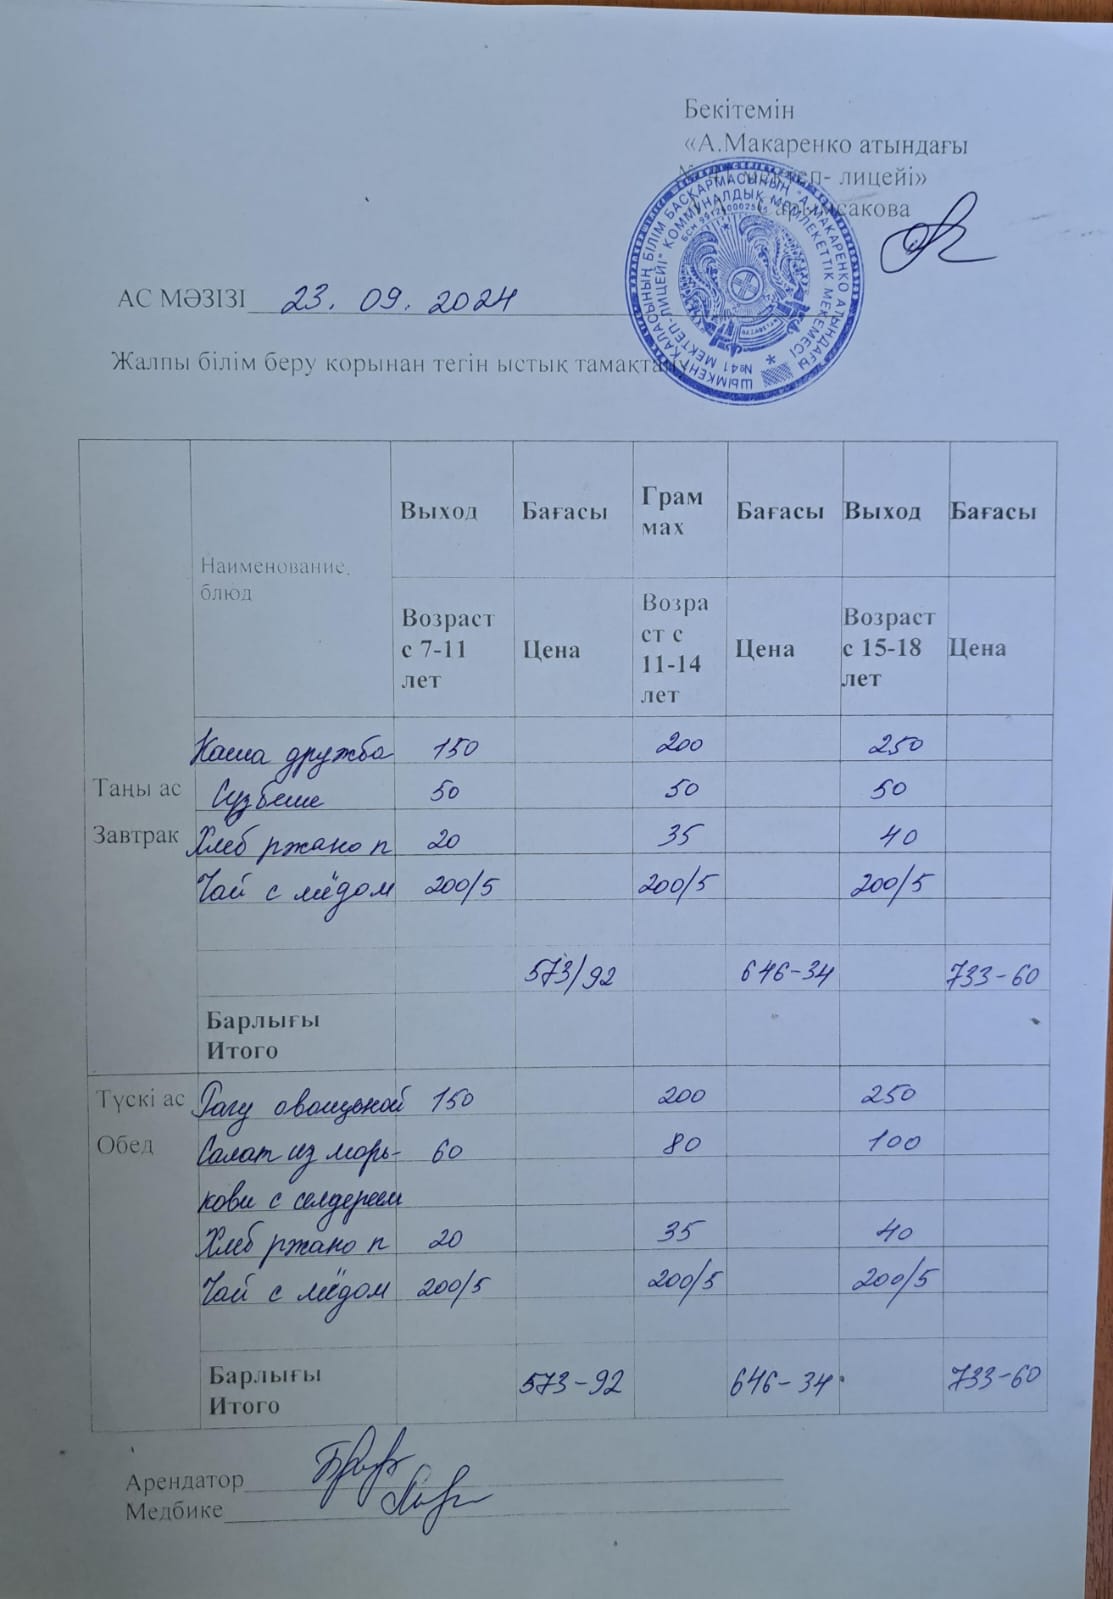 Бекітемін
«А.Макаренко атындағы
мектеп- лицейі»
АС МӘЗІЗІ 23. 09. 2024
Жалпы білім беру қорынан тегін ыстық тамақтану
Наименование, блюд
Выход Бағасы Грам мах Бағасы Выход Бағасы
Возраст с 7-11 лет Цена Возра ст с 11-14 лет Цена Возраст с 15-18 лет Цена
Таңы ас
Завтрак
Каша дружба 150 200 250
Сузбеше 50 50 50
Хлеб ржано п 20 35 40
Чай с мёдом 200/5 200/5 200/5
573/92 646-34 733-60
Барлығы
Итого
Түскі ас
Обед
Рагу овощьной 150 200 250
Салат из морь- 60 80 100
кови с селдереем
Хлеб ржано п 20 35 40
Чай с мёдом 200/5 200/5 200/5
Барлығы
Итого 573-92 646-34 733-60
Арендатор
Медбике